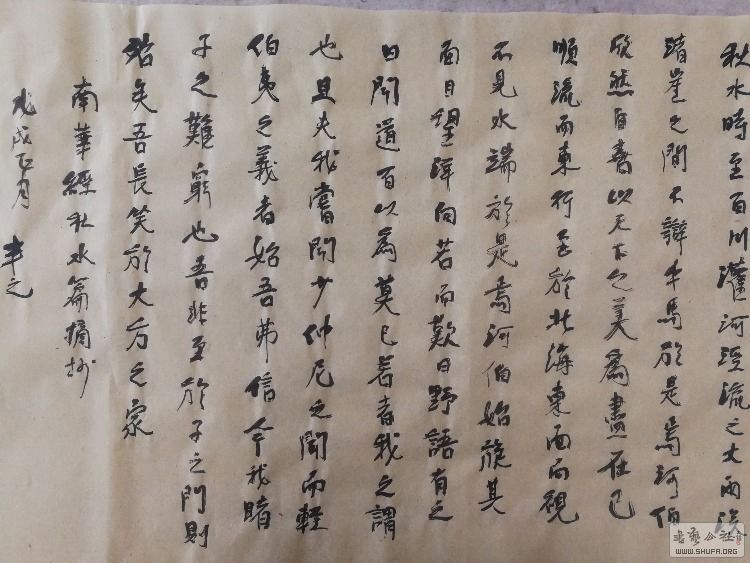 秋水時至百川灌河涇流之大兩涘
渚崖之間不辯牛馬於是焉河伯
欣然自喜以天下之美為盡在己
順流而東行至於北海東面而視
不見水端於是焉河伯始旋其
面目望洋向若而歎曰野語有之
曰聞道百以為莫己若者我之謂
也且夫我嘗聞少仲尼之聞而輕
伯夷之義者始吾弗信今我睹
子之難窮也吾非至於子之門則
殆矣吾長笑於大方之家
南華經秋水篇摘抄
戊戌正月
書藝公社
WWW.SHUFA.ORG